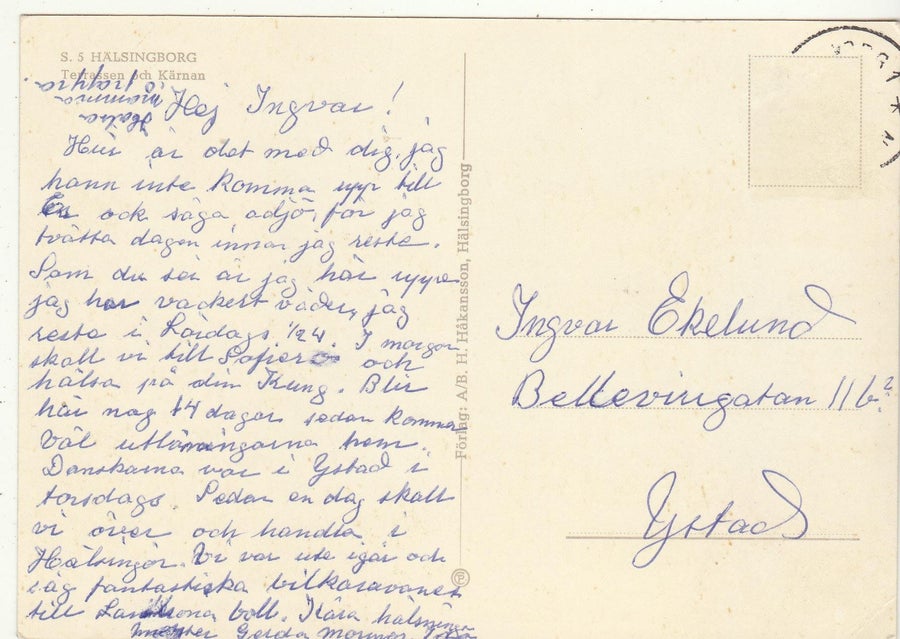 S. 5 HÄLSINGBORG
Terrassen och Kärnan
Hälsa
mamma
o pappa.
Hej Ingvar!
Hur är det med dig, jag
hann inte komma upp till
Er och säga adjö, för jag
tvätta dagen innan jag reste.
Som du ser är jag här uppe
jag har vackert väder, jag
reste i Lördags 1/24. I morgon
skall vi till Sofiero och
hälsa på din Kung. Blir
här nog 14 dagar sedan kommer
väl utlänningarna hem.
Danskarna var i Ystad i
torsdags. Sedan en dag skall
vi över och handla i
Hälsingör. Vi var ute igår och
såg fantastiska bilkaravaner
till Landskrona boll. Kära hälsningar
Gerda mormor.
Förlag: A/B. H. Håkansson, Hälsingborg
Ingvar Ekelund
Bellevuegatan 11 b.2
Ystad